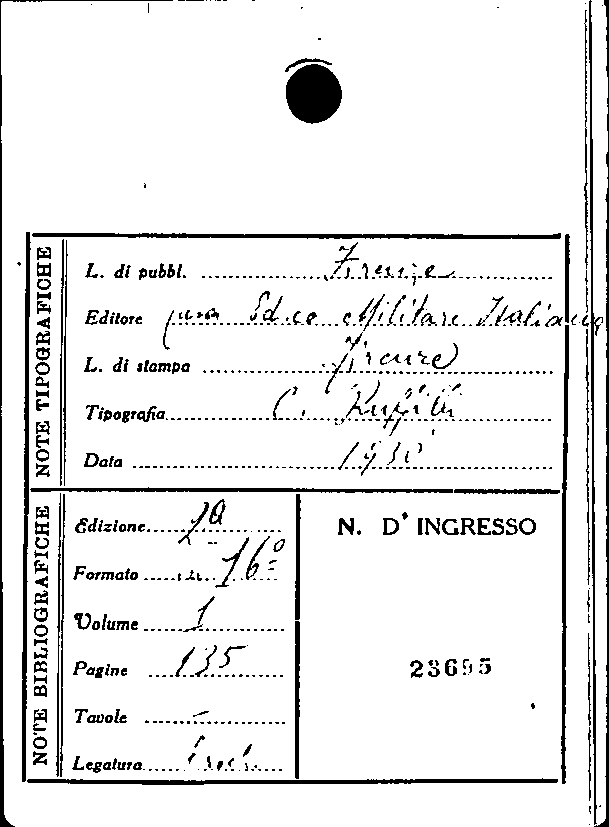 NOTE TIPOGRAFICHE
L. di pubbl. Firenze
Editore Ed.ce Militare Italiana
L. di stampa Firenze
Tipografia C. Ruffilli
Data 1930
NOTE BIBLIOGRAFICHE
Edizione 2a
Formato in 16º
Volume 1
Pagine 135
Tavole -
Legatura
N. D' INGRESSO
23695